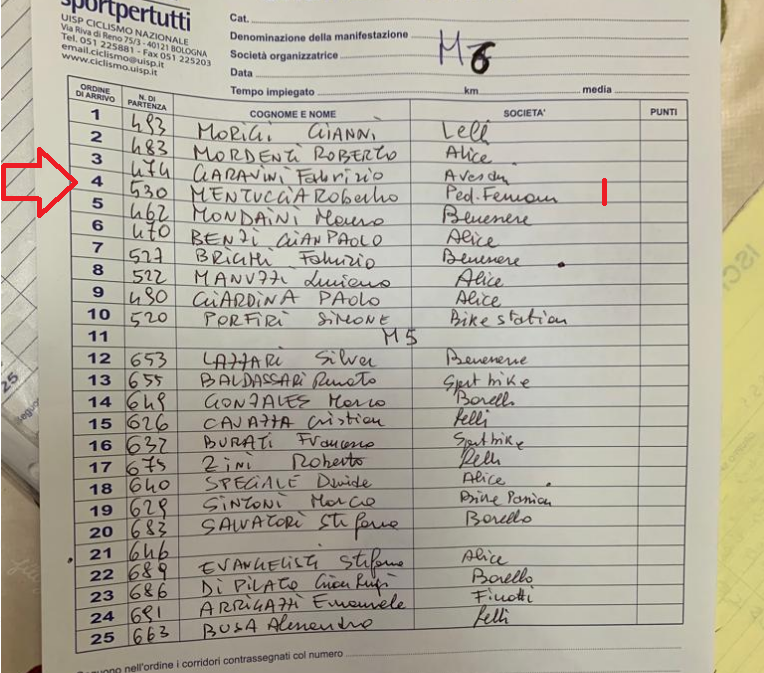 sportpertutti
UISP CICLISMO NAZIONALE
Via Riva di Reno 75/3 - 40121 BOLOGNA
Tel. 051 225881 - Fax 051 225203
email.ciclismo@uisp.it
www.ciclismo.uisp.it
Cat.
Denominazione della manifestazione
Società organizzatrice
Data
Tempo impiegato km media
ORDINE DI ARRIVO N. DI PARTENZA COGNOME E NOME SOCIETA' PUNTI
1 493 MORIGI GIANNI Lelli
2 483 MORDENTI ROBERTO Alice
3 474 GARAVINI Fabrizio
4 530 MENTUCCIA Roberto
5 462 MONDAINI Mauro Benenere
6 470 BENZI GIANPAOLO Alice
7 527 BRIGHI Fabrizio Benenere
8 522 MANUZZI Luciano Alice
9 490 GIARDINA PAOLO Alice
10 520 PORFIRI SIMONE Bike station
11 M5
12 653 LAZZARI Silver Benenere
13 655 BALDASSARI Renato Sport bike
14 649 GONZALES Marco Borello
15 626 CAVAZZA Cristian Lelli
16 637 BURATI Francesco Sport bike
17 675 ZINI Roberto Lelli
18 640 SPECIALE Davide Alice
19 629 SINTONI Marco Bike Passion
20 683 SALVATORI Stefano Borello
21 646
22 689 EVANGELISTI Stefano Alice
23 686 DI PILATO Gian Luigi Borello
24 691 ARRIGAZZI Emanuele Finotti
25 663 BUSA Alessandro Lelli
nell'ordine i corridori contrassegnati col numero